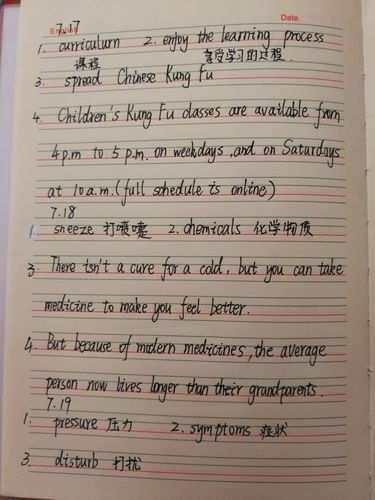 Date.
7.17
1. curriculum 2. enjoy the learning process
课程 享受学习的过程.
3. spread Chinese Kung Fu
4. Children's Kung Fu classes are available from
4 p.m to 5 p.m. on weekdays, and on Saturdays
at 10 a.m. (full schedule is online)
7.18
1. sneeze 打喷嚏 2. chemicals 化学物质
3. There isn't a cure for a cold, but you can take
medicine to make you feel better.
4. But because of modern medicines, the average
person now lives longer than their grandparents.
7.19
1. pressure 压力 2. symptoms 症状
3. disturb 打扰